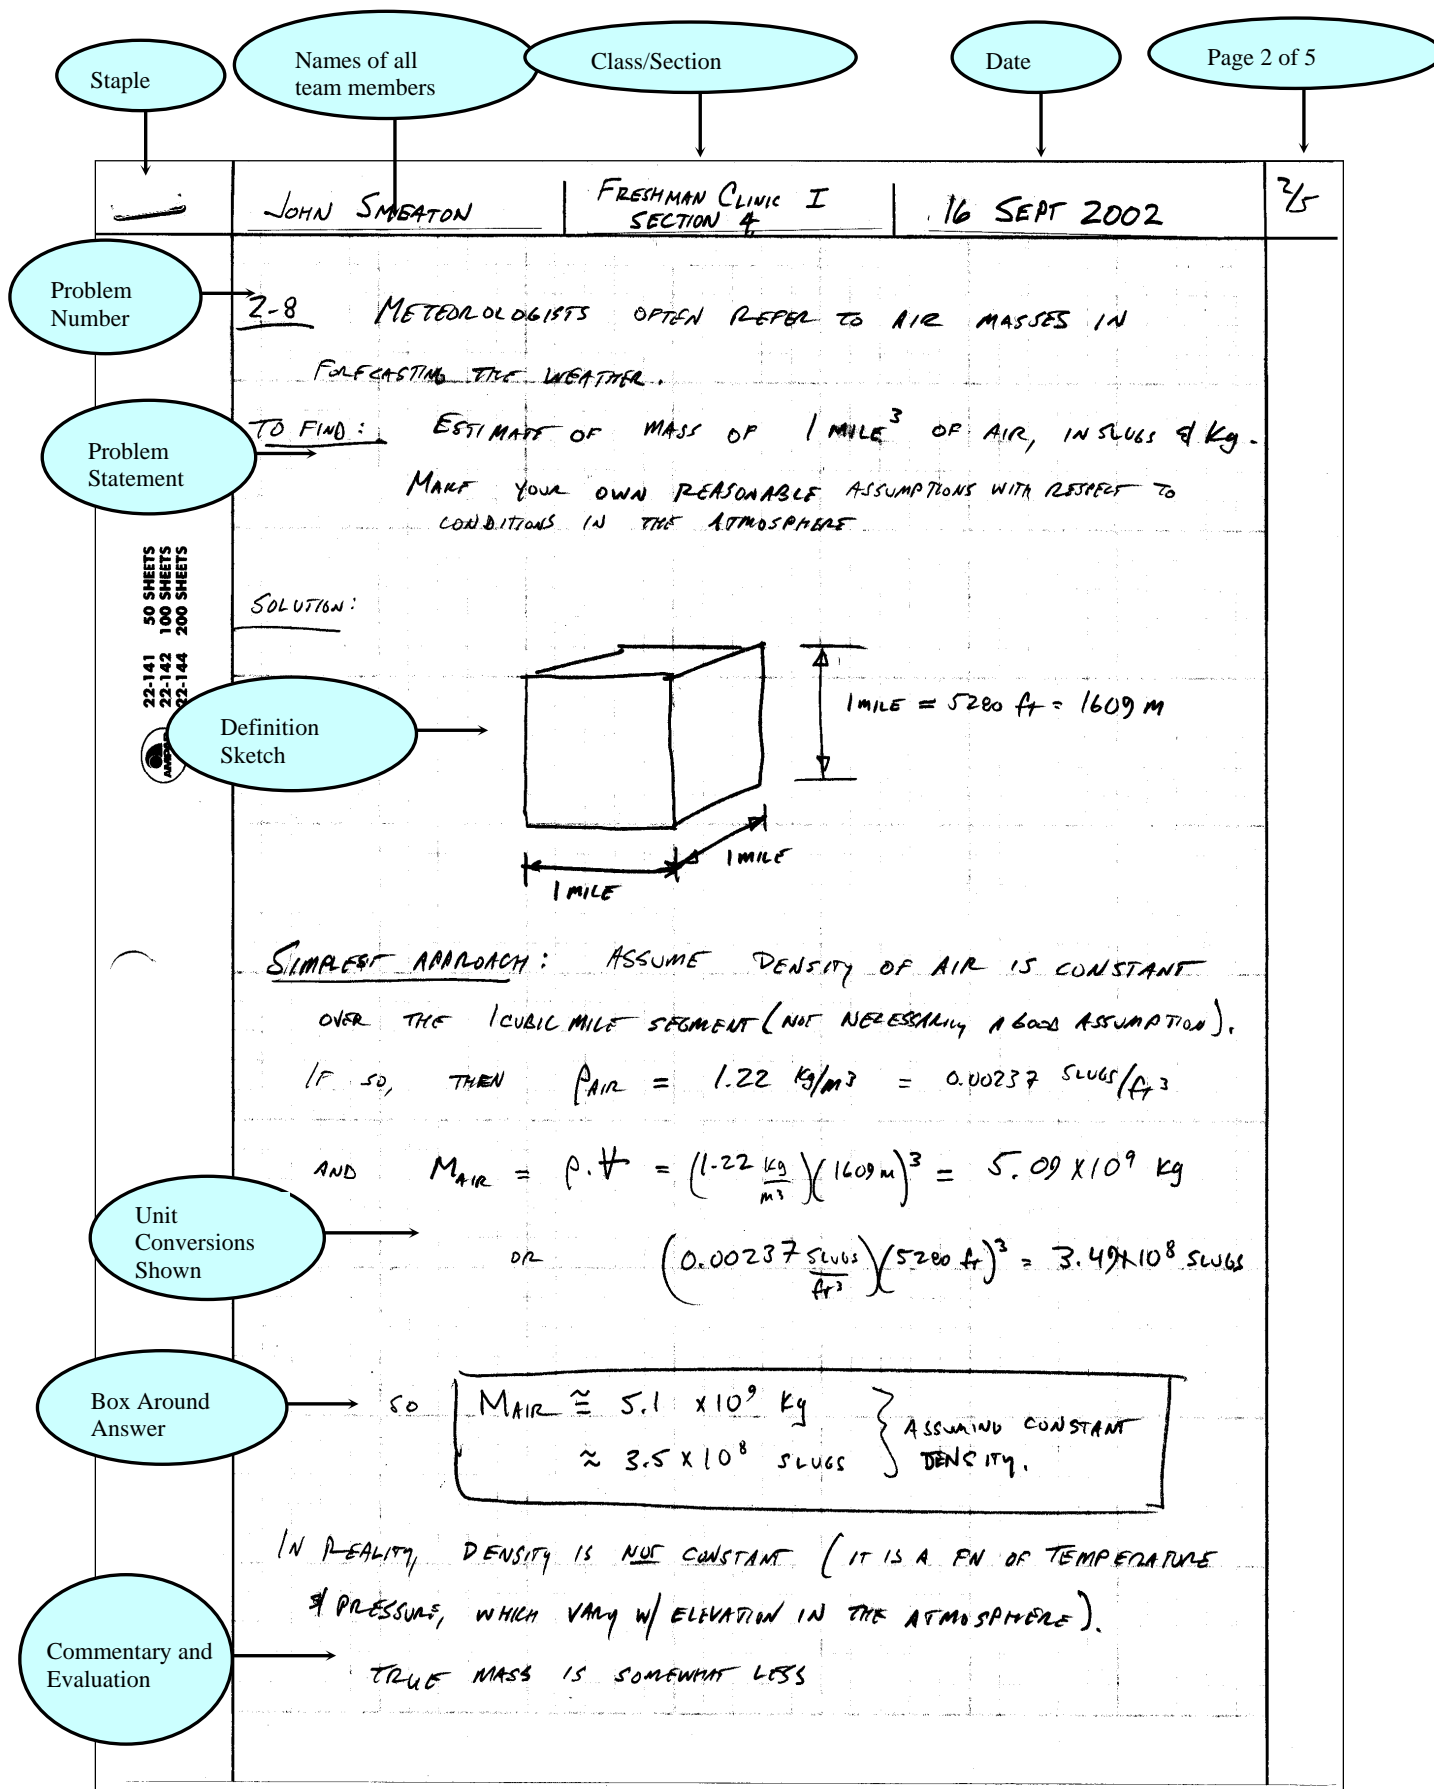 Staple
Names of all
team members
Class/Section
Date
Page 2 of 5
JOHN SMEATON
FRESHMAN CLINIC I
SECTION 4
16 SEPT 2002
2/5
Problem
Number
2-8 METEOROLOGISTS OFTEN REFER TO AIR MASSES IN
FORECASTING THE WEATHER.
Problem
Statement
TO FIND: ESTIMATE OF MASS OF 1 MILE³ OF AIR, IN SLUGS & Kg.
MAKE YOUR OWN REASONABLE ASSUMPTIONS WITH RESPECT TO
CONDITIONS IN THE ATMOSPHERE
22-141 50 SHEETS
22-142 100 SHEETS
22-144 200 SHEETS
SOLUTION:
Definition
Sketch
1 MILE = 5280 ft = 1609 m
1 MILE
1 MILE
SIMPLEST APPROACH: ASSUME DENSITY OF AIR IS CONSTANT
OVER THE 1 CUBIC MILE SEGMENT (NOT NECESSARILY A GOOD ASSUMPTION).
IF SO, THEN ρAIR = 1.22 Kg/m³ = 0.00237 SLUGS/ft³
AND MAIR = ρ·V = (1.22 kg/m³)(1609 m)³ = 5.09 X 10⁹ Kg
Unit
Conversions
Shown
OR (0.00237 SLUGS/ft³)(5280 ft)³ = 3.49 X 10⁸ SLUGS
Box Around
Answer
SO MAIR ≅ 5.1 X 10⁹ Kg
≈ 3.5 X 10⁸ SLUGS
} ASSUMING CONSTANT
DENSITY.
IN REALITY, DENSITY IS NOT CONSTANT (IT IS A FN OF TEMPERATURE
& PRESSURE, WHICH VARY W/ ELEVATION IN THE ATMOSPHERE).
Commentary and
Evaluation
TRUE MASS IS SOMEWHAT LESS